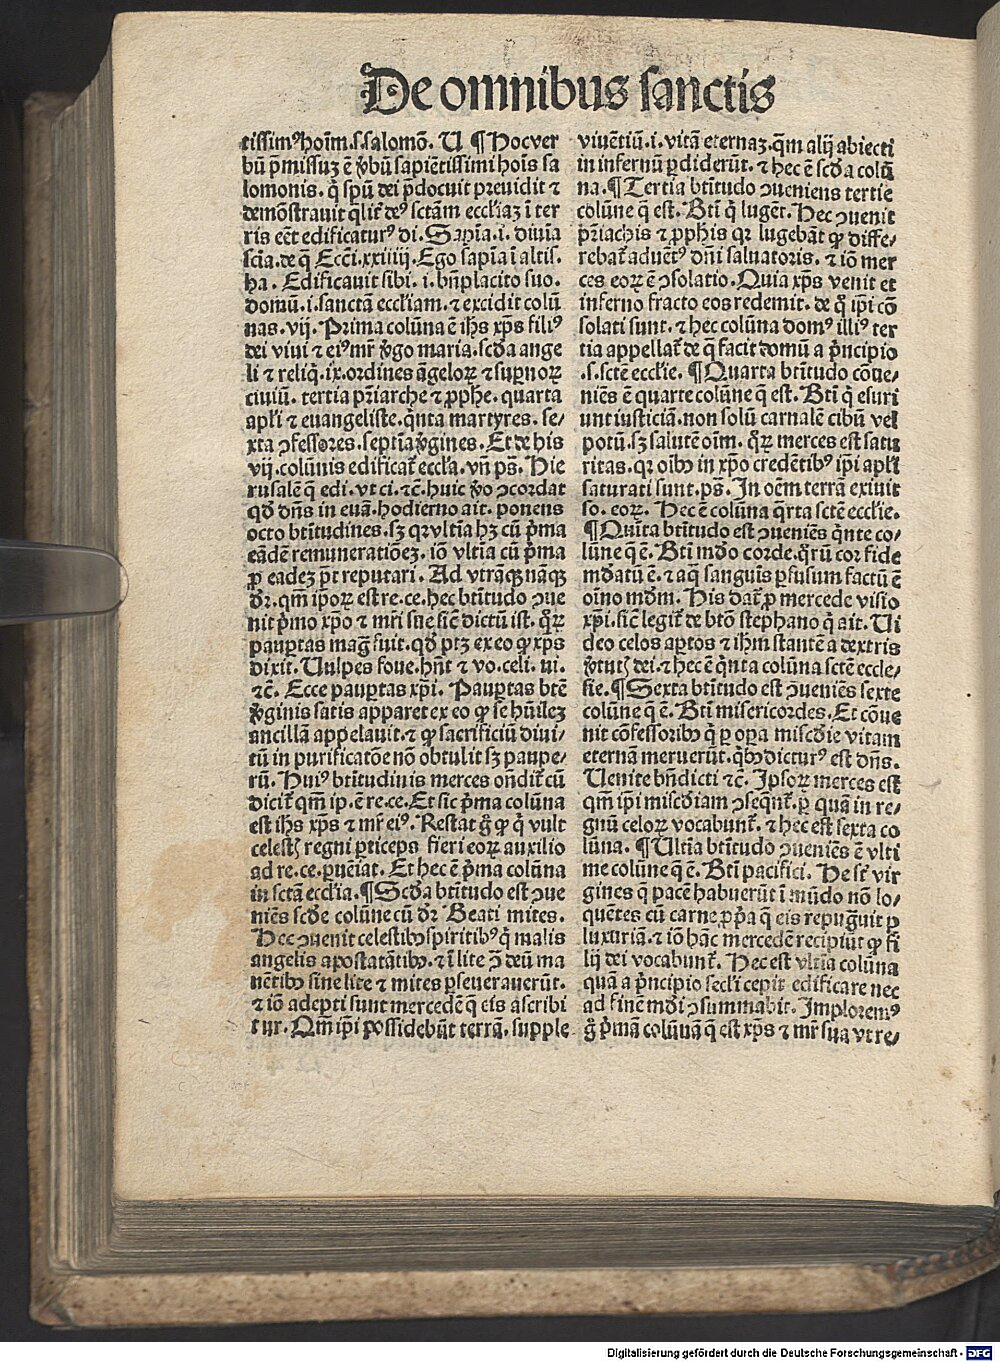 De omnibus sanctis
tissimꝰ hoīm .s. salomō. U ¶ Hoc ver
bū p̄missuꝫ ē v̄bū sapiētissimi hoīs sa
lomonis. q̄ spū dei p̄docuit preuidit ⁊
demōstrauit qlit̄ deꝰ sctām eccliaꝫ ī ter
ris eēt edificaturꝰ di. Sapīa .i. diuīa
scīa. de q̄ Eccī. xxiiij. Ego sapīa ī altis.
ha. Edificauit sibi .i. bn̄placito suo.
domū .i. sanctā eccliam. ⁊ excidit colū
nas. vij. Prima colūna ē ihs xp̄s filiꝰ
dei viui ⁊ eiꝰ mr̄ v̄go maria. scd̄a ange
li ⁊ reliq̄. ix. ordines āgeloꝝ ⁊ sup̄noꝝ
ciuiū. tertia pr̄iarche ⁊ ꝓphe. quarta
apl̄i ⁊ euangeliste. qnta martyres. se/
xta ↄfessores. septīa v̄gines. Et de his
vij. colūnis edificat̄ eccl̄a. vn̄ ps̄. Hie
rusalē q̄ edi. vt ci. ⁊c̄. huic v̄o ↄcordat
qd̄ dn̄s in euā. hodierno ait. ponens
octo btītudines. sꝫ qꝛ vltīa hꝫ cū p̄ma
eādē remuneratiōeꝫ. iō vltīa cū p̄ma
ꝓ eadeꝫ pt̄ reputari. Ad vtrāqꝫ nāqꝫ
dr̄. qm̄ ipoꝝ est re. ce. hec btītudo ↄue
nit p̄mo xp̄o ⁊ mr̄i sue sic̄ dictū ist. qꝝ
paup̄tas maḡ fuit. qd̄ ptꝫ ex eo qꝫ xp̄s
dixit. Uulpes foue. hn̄t ⁊ vo. celi. ni.
⁊c̄. Ecce paup̄tas xp̄i. Paup̄tas btē
v̄ginis satis apparet ex eo qꝫ se hūileꝫ
ancillā appelauit. ⁊ qꝫ sacrificiū diui/
tū in purificatōe nō obtulit sꝫ paupe/
rū. Huiꝰ btītudinis merces on̄dit̄ cū
dicit̄ qm̄ ip. ē re. ce. Et sic p̄ma colūna
est ihs xp̄s ⁊ mr̄ eiꝰ. Restat g̊ qꝫ q̄ vult
celestꝭ regni p̄ticeps fieri eoꝝ auxilio
ad re. ce. ꝑueīat. Et hec ē p̄ma colūna
in sctā ecclīa. ¶ Scd̄a btītudo est ↄue
niēs scd̄e colūne cū dr̄ Beati mites.
Hec ↄuenit celestibꝰ spiritibꝰ q̄ malis
angelis apostatātibꝰ. ⁊ ī lite ꝯ̄ deū ma
nētibꝰ sine lite ⁊ mites ꝑseuerauerūt.
⁊ iō adepti sunt mercedē q̄ eis ascribi
tur. Qm̄ ip̄i possidebūt terrā. supple
viuētiū .i. vitā eternaꝫ. qm̄ alij abiecti
in infernū ꝑdiderūt. ⁊ hec ē scd̄a colū
na. ¶ Tertīa btītudo ↄueniens tertie
colūne q̄ est. Btī q̄ lugēt. Hec ↄuenit
pr̄iachis ⁊ ꝓphis qꝛ lugebāt qꝫ diffe/
rebat̄ aduētꝰ dn̄i saluatoris. ⁊ iō mer
ces eoꝝ ē ↄsolatio. Quia xp̄s venit et
inferno fracto eos redemit. de q̊ ip̄i cō
solati sunt. ⁊ hec colūna domꝰ illiꝰ ter
tia appellat̄ de q̄ facit domū a p̄ncipio
.s. sctē ecclīe. ¶ Quarta btītudo cōue/
niēs ē quarte colūne q̄ est. Btī q̄ esuri
unt iusticiā. non solū carnalē cibū vel
potū. sꝫ salutē oīm. qꝝ merces est satu
ritas. qꝛ oibꝰ in xp̄o credētibꝰ ip̄i apl̄i
saturati sunt. ps̄. In oēm terrā exiuit
so. eoꝝ. Hec ē colūna q̄rta sctē ecclīe.
¶ Quīta btītudo est ↄueniēs q̄nte co/
lūne q̄ ē. Btī mūdo corde. qrū cor fide
mūdatū ē. ⁊ aq̄ sanguīs ꝑfusum factū ē
oīno mūdm̄. His dat̄ ꝓ mercede visio
xp̄i. sic̄ legit̄ de btō stephano q̄ ait. Ui
deo celos ap̄tos ⁊ ihm̄ stantē a dextris
v̄tutꝭ dei. ⁊ hec ē q̄nta colūna sctē eccle/
sie. ¶ Sexta btītudo est ↄueniēs sexte
colūne q̄ ē. Btī misericordes. Et cōue
nit cōfessoribꝰ q̄ ꝑ oꝑa miscd̄ie vitam
eternā meruerūt. qbꝰ dicturꝰ est dn̄s.
Uenite bn̄dicti ⁊c̄. Ipsoꝝ merces est
qm̄ ip̄i miscd̄iam ↄseqnt̄. ꝑ quā in re/
gnū celoꝝ vocabunt̄. ⁊ hec est sexta co
lūna. ¶ Ultīa btītudo ↄueniēs ē vlti
me colūne q̄ ē. Btī pacifici. He st̄ vir
gines q̄ pacē habuerūt ī mūdo nō lo/
quētes cū carne ꝓpa q̄ eis repugūit ꝑ
luxuriā. ⁊ iō hāc mercedē recipiūt qꝫ fi
lij dei vocabunt̄. Hec est vltīa colūna
quā a p̄ncipio secl̄i cepit edificare nec
ad finē mūdi ↄsummabit. Imploremꝰ
g̊ p̄mā colūnā q̄ est xp̄s ⁊ mr̄ sua vt re/
Digitalisierung gefördert durch die Deutsche Forschungsgemeinschaft - DFG